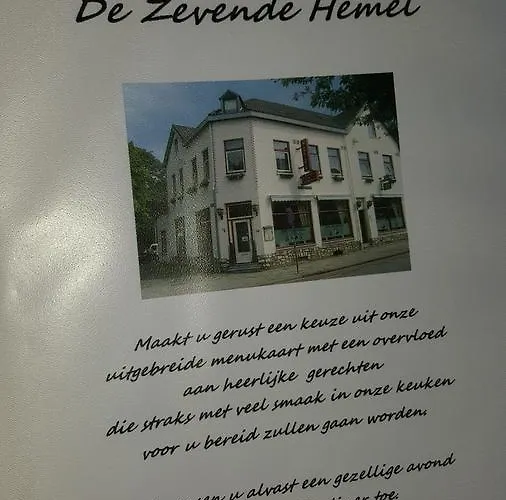 De Zevende Hemel
Maakt u gerust een keuze uit onze
uitgebreide menukaart met een overvloed
aan heerlijke gerechten
die straks met veel smaak in onze keuken
voor u bereid zullen gaan worden.
u alvast een gezellige avond
toe.